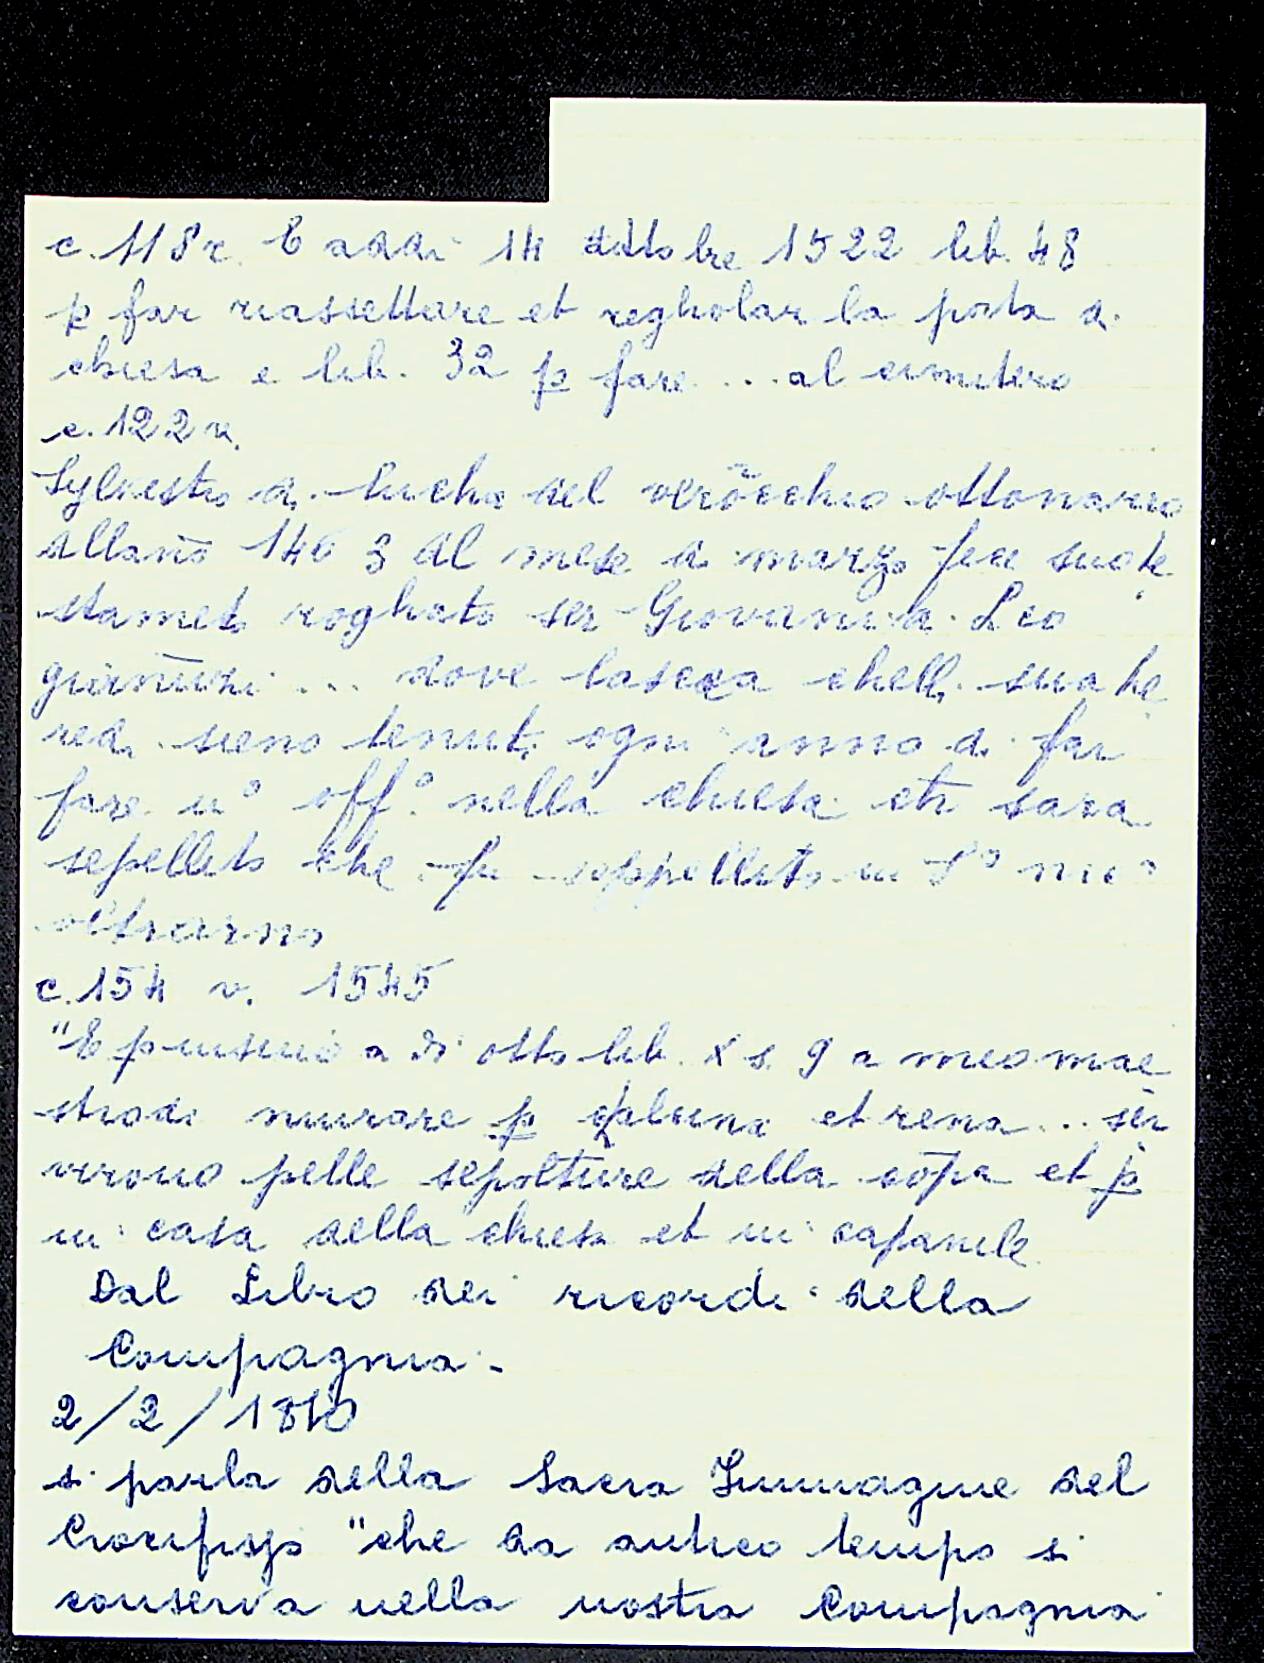 c. 118 r. E addi 14 ottobre 1522 lib. 48
p far riassettare et regholar la porta di
chiesa e lib. 32 p fare ... al cimitero
c. 122 v.
Sylvestro di lucha del verōcchio ottonario
allanō 1463 del mese di marzo fu suo te
stameto roghato ser Giovanni di Leo
giānuzi ... dove lascia chelli sua he
redi sieno tenuti ogni anno di far
fare uº offº nella chiesa etr sara
sepellito che fu seppellito in Sº nicº
oltrarno
c. 154 v. 1545
"E p insino a di otto lib. X s. 9 a meo mae
strodi murare p chalcina et rena ... ser
virono pelle sepolture della cōpa et p
in casa della chiesa et in capanile
Dal Libro dei ricordi della
Compagnia -
2/2/1810
si parla della Sacra Immagine del
Crocifisso "che da antico tempo si
conserva nella nostra Compagnia